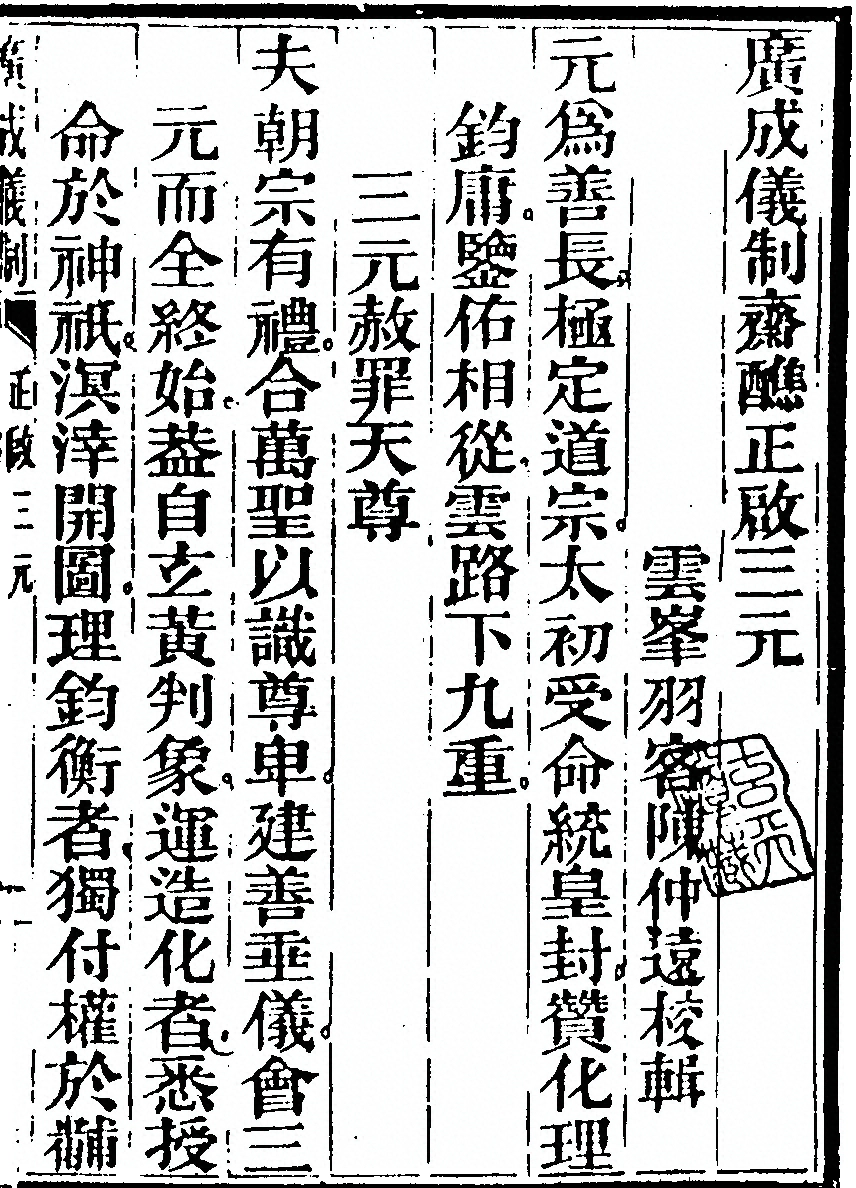 廣成儀制齋醮正啟三元
雲峯羽客陳仲遠校輯
元爲善長極定道宗太初受命統皇封贊化理
鈞庸鑒佑相從雲路下九重
三元赦罪天尊
夫朝宗有禮合萬聖以識尊卑建善垂儀會三
元而全終始葢自玄黃判象運造化者悉授
命於神祇溟涬開圖理鈞衡者獨付權於黼
廣成儀制 正啟三元 一